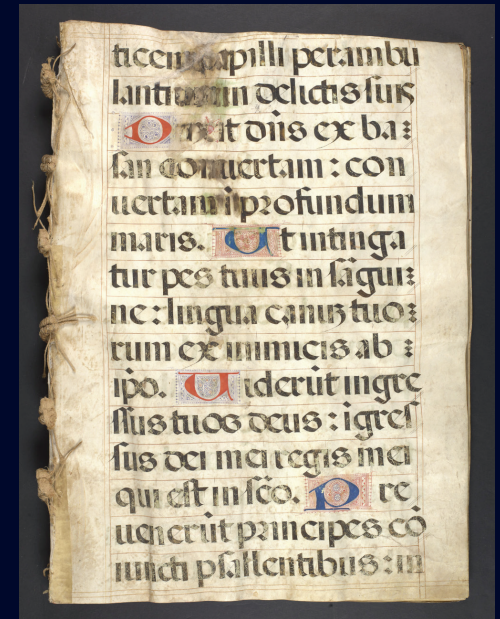 ticem capilli perambu
lantium in delictis suis
Dixit dn̄s ex ba:
san conuertam: con
uertam i profundum
maris. Ut intinga
tur pes tuus in sāgui:
ne: lingua canuꝫ tuo:
rum ex inimicis ab:
ip̄o. Uiderūt ingre
ssus tuos deus: īgres
sus dei mei regis mei
qui est in sc̄o. Pre
uenerūt principes cō
iuncti psallentibus: in